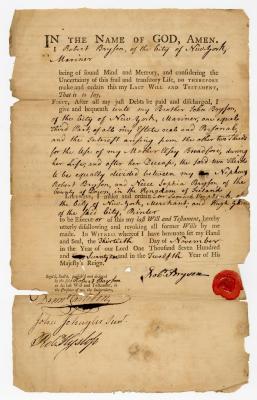 IN THE NAME OF GOD, AMEN.
I Robert Bryson, of the City of New-York,
Mariner
being of sound Mind and Memory, and considering the
Uncertainty of this frail and transitory Life, DO THEREFORE
make and ordain this my LAST WILL AND TESTAMENT,
That is to say,
FIRST, After all my just Debts be paid and discharged, I
give and bequeath unto my Brother John Bryson,
of the City of New York, Mariner, one equal
Third Part, of all my Estate real and Personal,
and the Interest arising from the other two Thirds
for the Use of my Mother
her Life; and after her Decease, the said two Thirds
to be equally devided between my Nephew
Robert Bryson, and Niece Sophia Bryson, of the
County of Down, in the Kingdom of Ireland
LIKEWISE, I make and ordain
the City of New York, Merchant, and Hugh
of the said City, Printer
to be Execut ors of this my last WILL and Testament, hereby
utterly disallowing and revoking all former Wills by me
made. IN WITNESS whereof I have hereunto set my Hand
and Seal, the Thirtieth Day of November
in the Year of our Lord One Thousand Seven Hundred
and Seventy one and in the Twelfth Year of His
Majesty's Reign.
Signed, Sealed, published and declared
Robt Bryson
his last Will and Testament, in
John